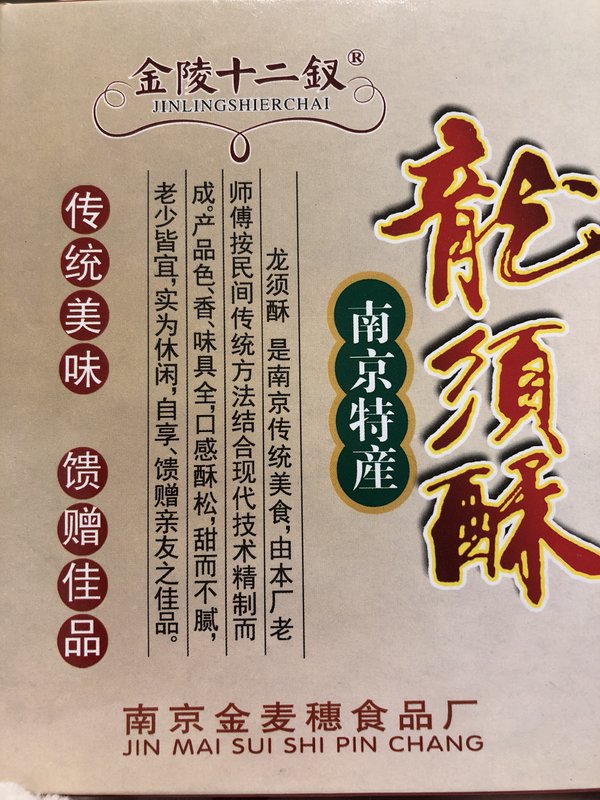 金陵十二钗®
JINLINGSHIERCHAI
龍须酥
南京特産
龙须酥 是南京传统美食，由本厂老
师傅按民间传统方法结合现代技术精制而
成。产品色、香、味具全，口感酥松，甜而不腻，
老少皆宜，实为休闲，自享、馈赠亲友之佳品。
传统美味 馈赠佳品
南京金麦穗食品厂
JIN MAI SUI SHI PIN CHANG